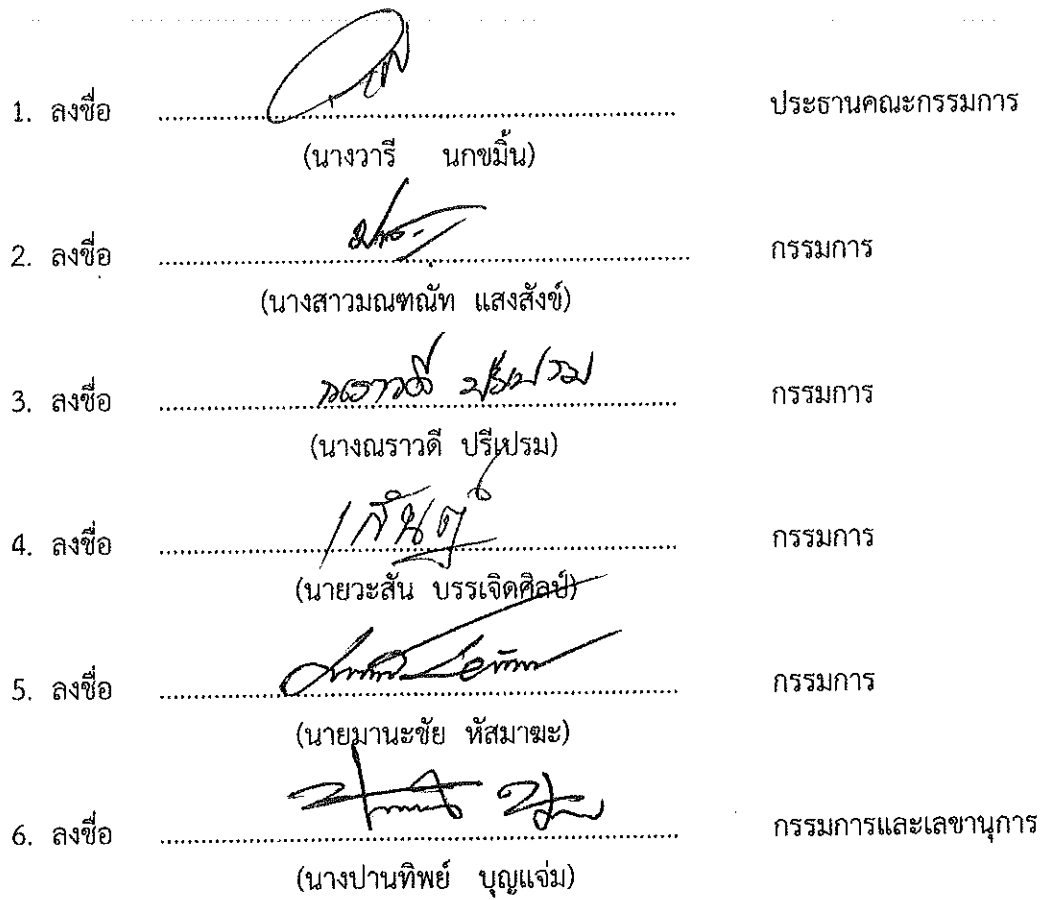 1. ลงชื่อ ........................................ ประธานคณะกรรมการ
(นางวารี นกขมิ้น)
2. ลงชื่อ ........................................ กรรมการ
(นางสาวมณฑณัท แสงสังข์)
3. ลงชื่อ ณราวดี ปรีเปรม กรรมการ
(นางณราวดี ปรีเปรม)
4. ลงชื่อ ........................................ กรรมการ
(นายวะสัน บรรเจิดศิลป์)
5. ลงชื่อ ........................................ กรรมการ
(นายมานะชัย หัสมาฆะ)
6. ลงชื่อ ........................................ กรรมการและเลขานุการ
(นางปานทิพย์ บุญแจ่ม)